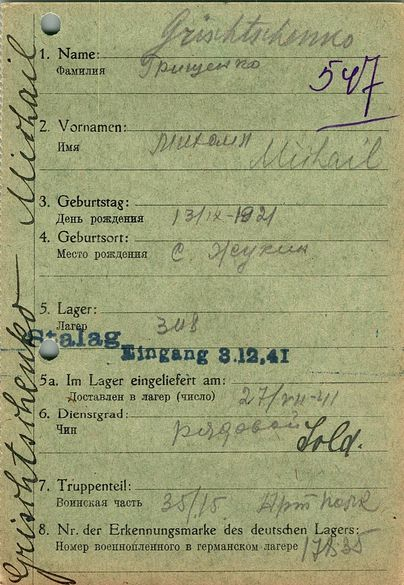 Grischtschenko
1. Name:
Фамилия
Грищенко
547
2. Vornamen:
Имя
Михаил
Michail
3. Geburtstag:
День рождения
13/IX-1921
4. Geburtsort:
Место рождения
с. Жукин
5. Lager:
Лагер
308
Stalag
Eingang 8.12.41
5a. Im Lager eingeliefert am:
Доставлен в лагер (число)
6. Dienstgrad:
Чин
рядовой Sold.
7. Truppenteil:
Воинская часть
35/15 Арт полк
8. Nr. der Erkennungsmarke des deutschen Lagers:
Номер военнопленного в германском лагере
Grischtschenko - Michail